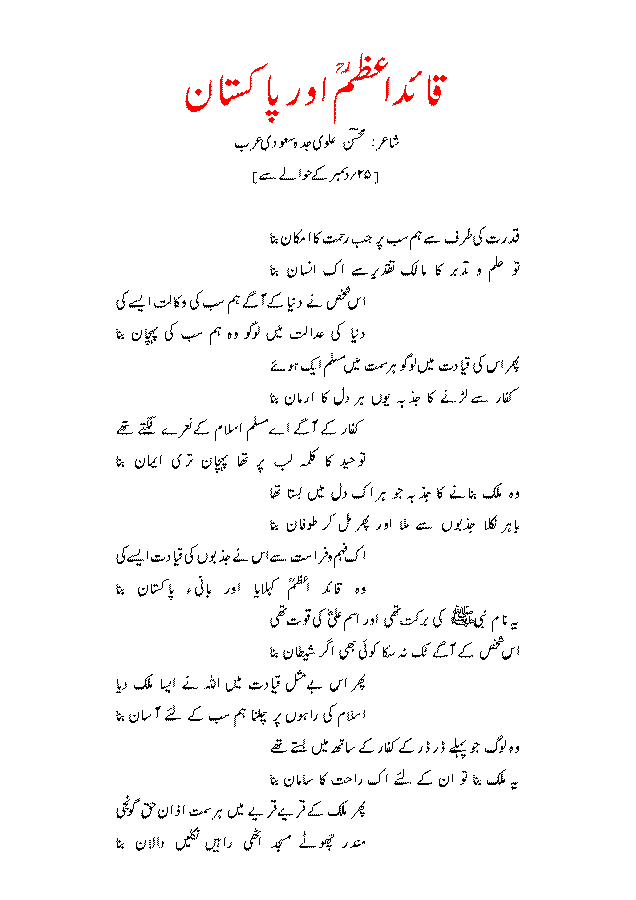 قائد اعظمؒ اور پاکستان
شاعر: محسنؔ علوی جدہ سعودی عرب
[۲۵؍دسمبر کے حوالے سے]
قدرت کی طرف سے ہم سب پر جب رحمت کا امکان بنا
تو حلم و تدبر کا مالک تقدیر سے اک انسان بنا
اس شخص نے دنیا کے آگے ہم سب کی وکالت ایسے کی
دنیا کی عدالت میں لوگو وہ ہم سب کی پہچان بنا
پھر اس کی قیادت میں لوگو ہر سمت میں مسلم ایک ہوئے
کفار سے لڑنے کا جذبہ یوں ہر دل کا ارمان بنا
کفار کے آگے اے مسلم اسلام کے نعرے لگتے تھے
توحید کا کلمہ لب پر تھا پہچان تری ایمان بنا
وہ ملک بنانے کا جذبہ جو ہر اک دل میں بستا تھا
باہر نکلا جذبوں سے ملا اور پھر مل کر طوفان بنا
اک فہم و فراست سے اس نے جذبوں کی قیادت ایسے کی
وہ قائد اعظمؒ کہلایا اور بانیء پاکستان بنا
یہ نام نبیﷺ کی برکت تھی اور اسم علیؓ کی قوت تھی
اس شخص کے آگے ٹک نہ سکا کوئی بھی اگر شیطان بنا
پھر اس بے مثل قیادت میں اللہ نے ایسا ملک دیا
اسلام کی راہوں پر چلنا ہم سب کے لئے آسان بنا
وہ لوگ جو پہلے ڈر ڈر کے کفار کے ساتھ میں بستے تھے
یہ ملک بنا تو ان کے لئے اک راحت کا سامان بنا
پھر ملک کے قریے قریے میں ہر سمت اذان حق گونجی
مندر چھوٹے مسجد اٹھی راہیں نکلیں دالان بنا